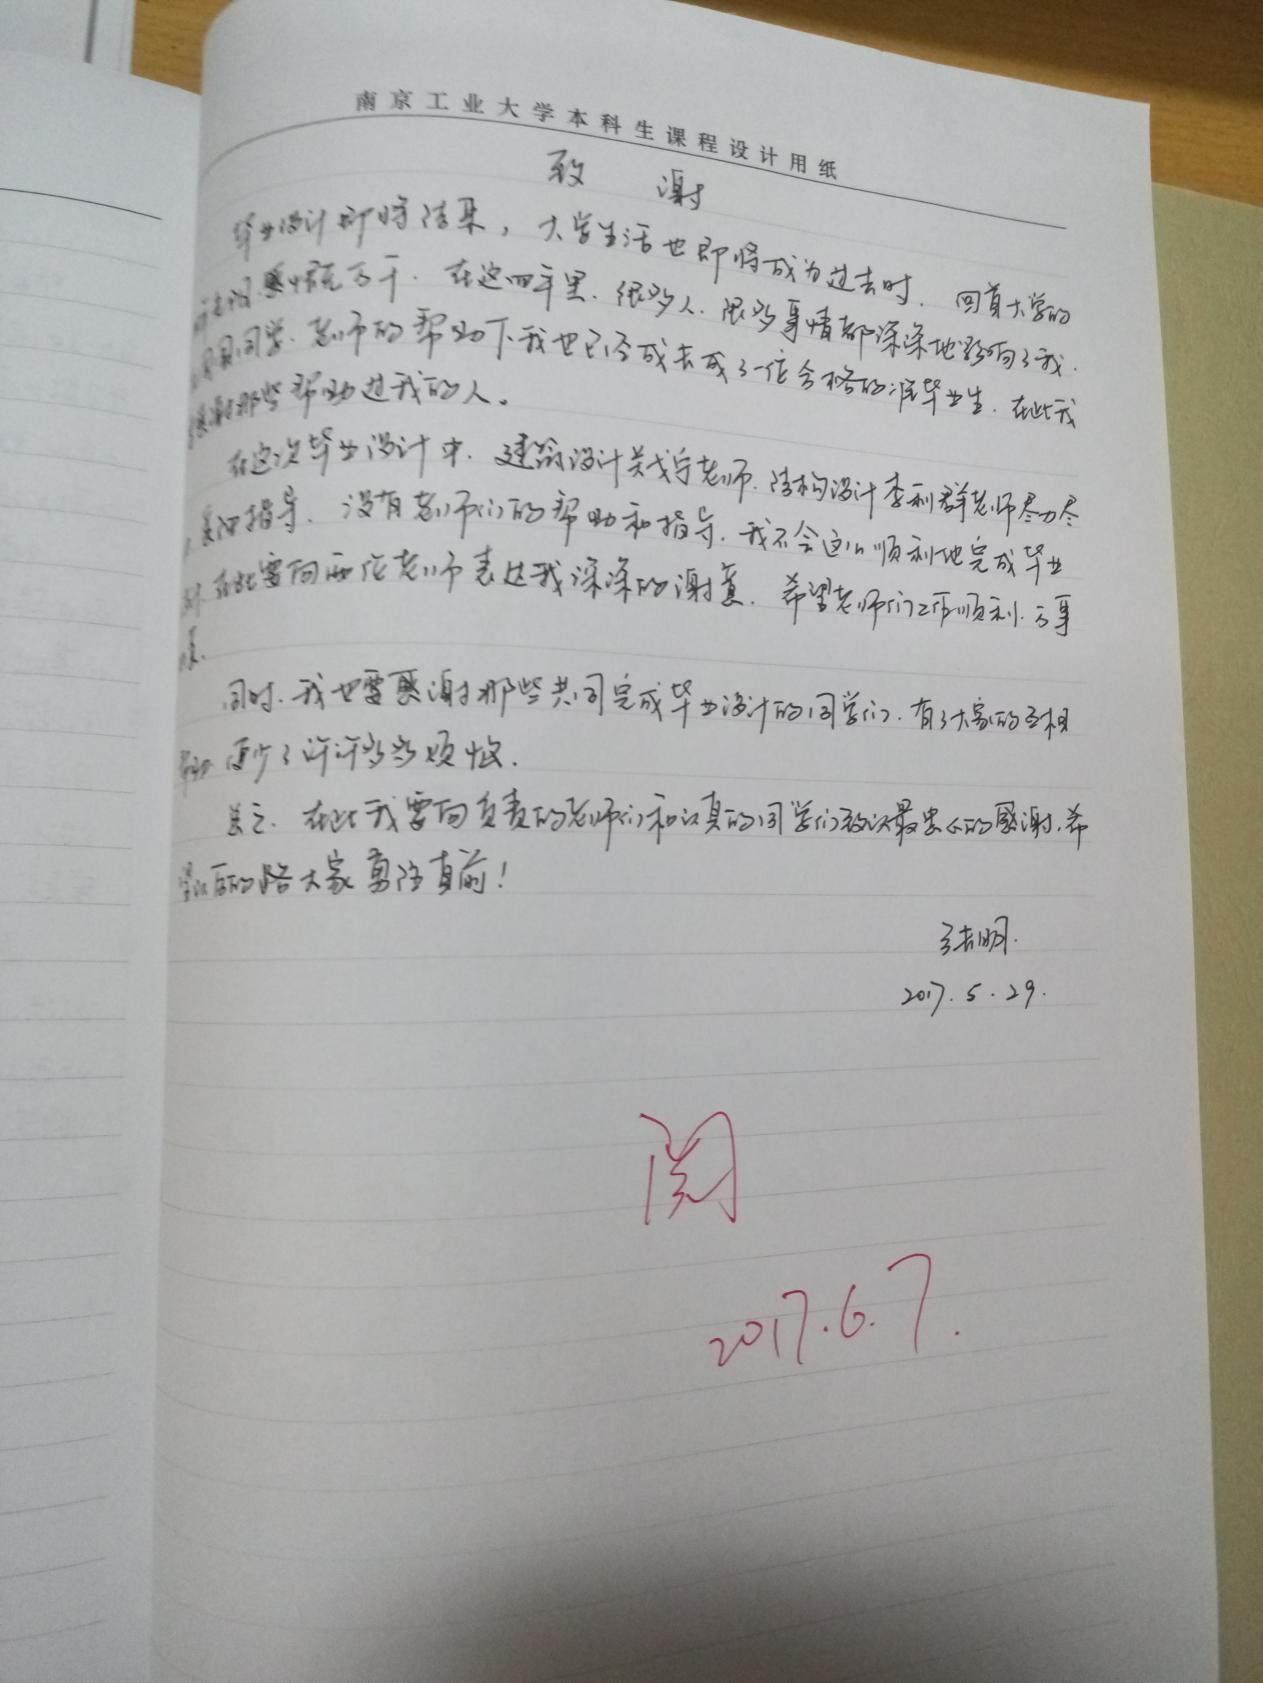 南京工业大学本科生课程设计用纸
致 谢
毕业设计即将结束，大学生活也即将成为过去时，回首大学的
感慨万千．在这四年里．很多人．很多事情都深深地影响了我．
同学．老师的帮助下我也已经成长成了一位合格的准毕业生．在此我
感谢那些帮助过我的人。
在这次毕业设计中．建筑设计老师．结构设计李利群老师尽力尽
指导．没有老师们的帮助和指导．我不会这么顺利地完成毕业
在此要向两位老师表达我深深的谢意．希望老师们工作顺利．万事
同时．我也要感谢那些共同完成毕业设计的同学们．有了大家的互相
帮助 便少了许许多多烦恼．
总之．在此我要向负责的老师们和认真的同学们致以最衷心的感谢．希
望以后的路大家勇往直前！
张明．
2017．5．29．
阅
2017.6.7.